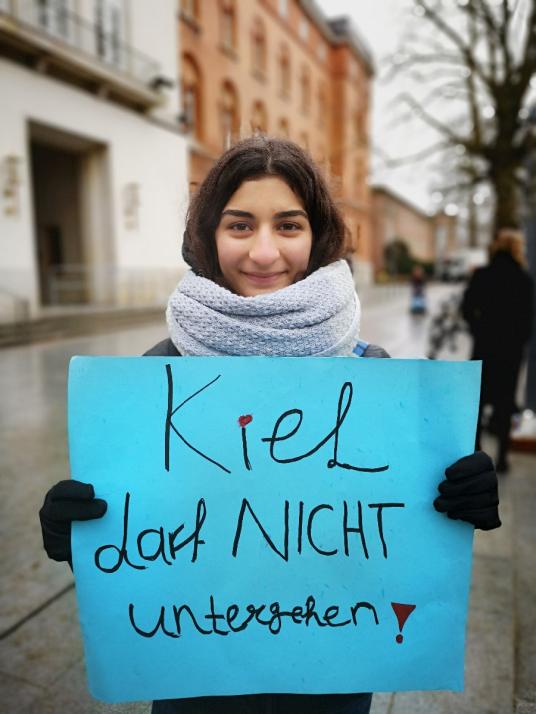 Kiel
darf NICHT
untergehen!